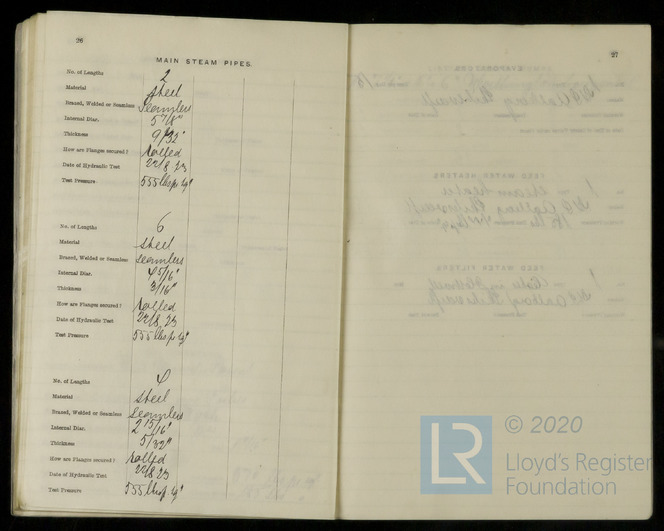 26
MAIN STEAM PIPES.
No. of Lengths 2
Material Steel
Brazed, Welded or Seamless Seamless
Internal Diar. 5 7/8"
Thickness 9/32"
How are Flanges secured? Rolled
Date of Hydraulic Test 22/8/23
Test Pressure 555 lbs pr sq"
No. of Lengths 6
Material Steel
Brazed, Welded or Seamless Seamless
Internal Diar. 4 5/16"
Thickness 3/16"
How are Flanges secured? Rolled
Date of Hydraulic Test 22/8/23
Test Pressure 555 lbs pr sq"
No. of Lengths 4
Material Steel
Brazed, Welded or Seamless Seamless
Internal Diar. 2 15/16"
Thickness 5/32"
How are Flanges secured? Rolled
Date of Hydraulic Test 22/8/23
Test Pressure 555 lbs pr sq"
27
LR © 2020
Lloyd's Register
Foundation